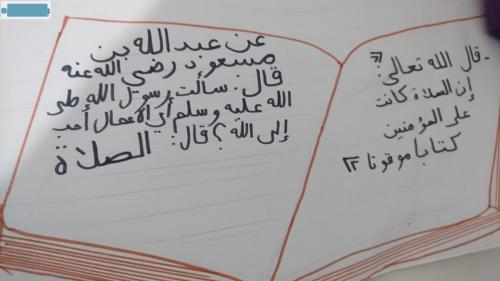 - قال الله تعالى: "
إن الصلاة كانت
على المؤمنين
كتابا موقوتا "
عن عبد الله بن
مسعود رضي الله عنه
قال: سألت رسول الله صلى
الله عليه وسلم أي الأعمال أحب
إلى الله؟ قال:
الصلاة